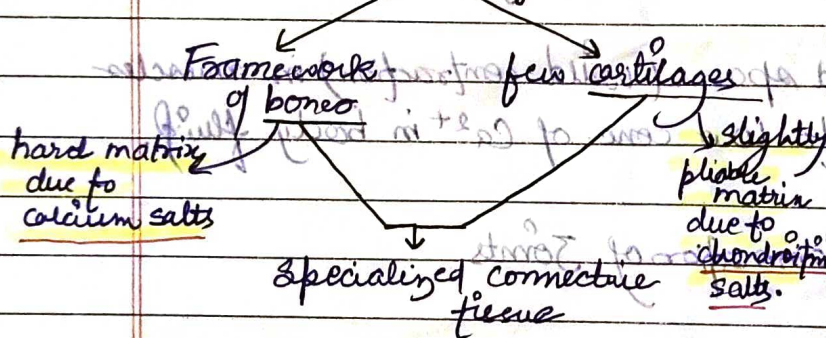 Framework
of bones
few cartilages
hard matrix
due to
calcium salts
slightly
pliable
matrix
due to
chondroitin
salts.
Specialized connective
tissue